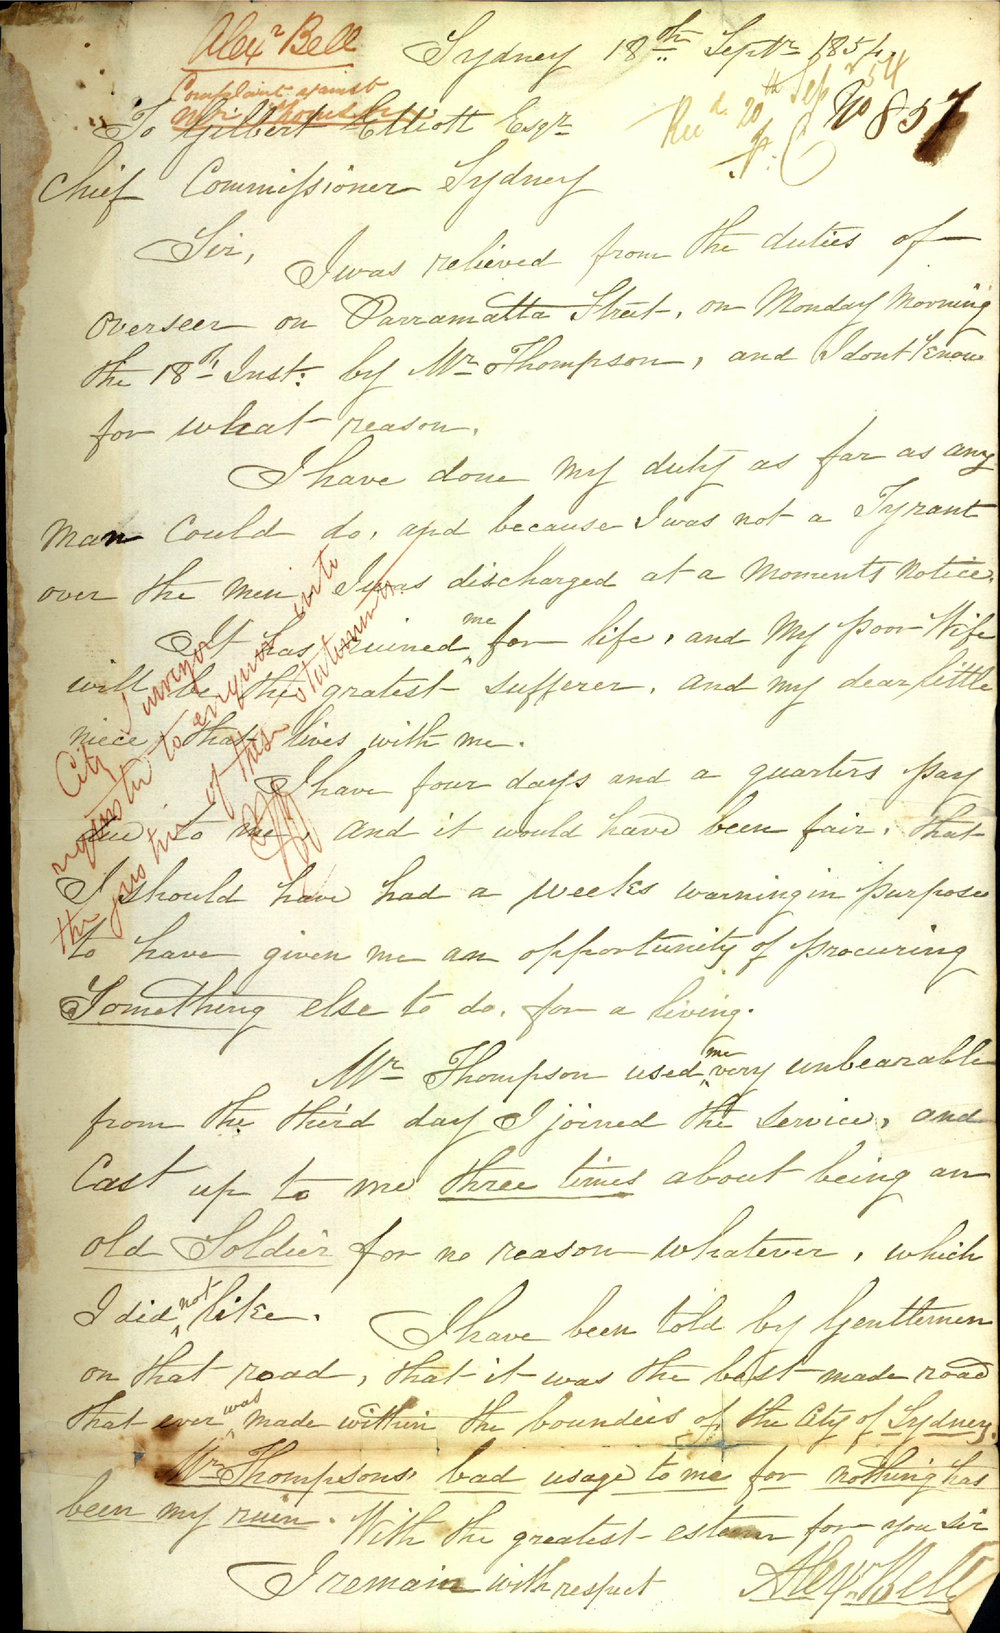 Alexr Bell
Complaint against
Mr Thompson
Sydney 18th Septr 1854
Recd. 20th Sep 54
No 857
To Gilbert Elliott Esqr
Chief Commissioner Sydney
Sir, I was relieved from the duties of
overseer on Parramatta Street, on Monday Morning
the 18th Inst: by Mr Thompson, and I dont know
for what reason.
I have done my duty as far as any
man could do, and because I was not a Tyrant
over the men I was discharged at a moments notice.
It has ruined me for life, and my poor Wife
will be the gratest sufferer, and my dear little
niece that lives with me.
I have four days and a quarters pay
due to me, and it would have been fair, that
I should have had a weeks warning in purpose
to have given me an opportunity of procuring
Something else to do, for a living.
Mr Thompson used me very unbearable
from the third day I joined the service, and
Cast up to me three times about being an
old Soldier for no reason whatever, which
I did not like. I have been told by Genttemen
on that road, that it was the best made road
that ever was made within the boundeis of the City of Sydney.
Mr Thompsons, bad usage to me for nothing has
been my ruin. With the greatest esteem for you sir
I remain with respect Alexr Bell
City Surveyor
requested to enquire into
the justice of this statement